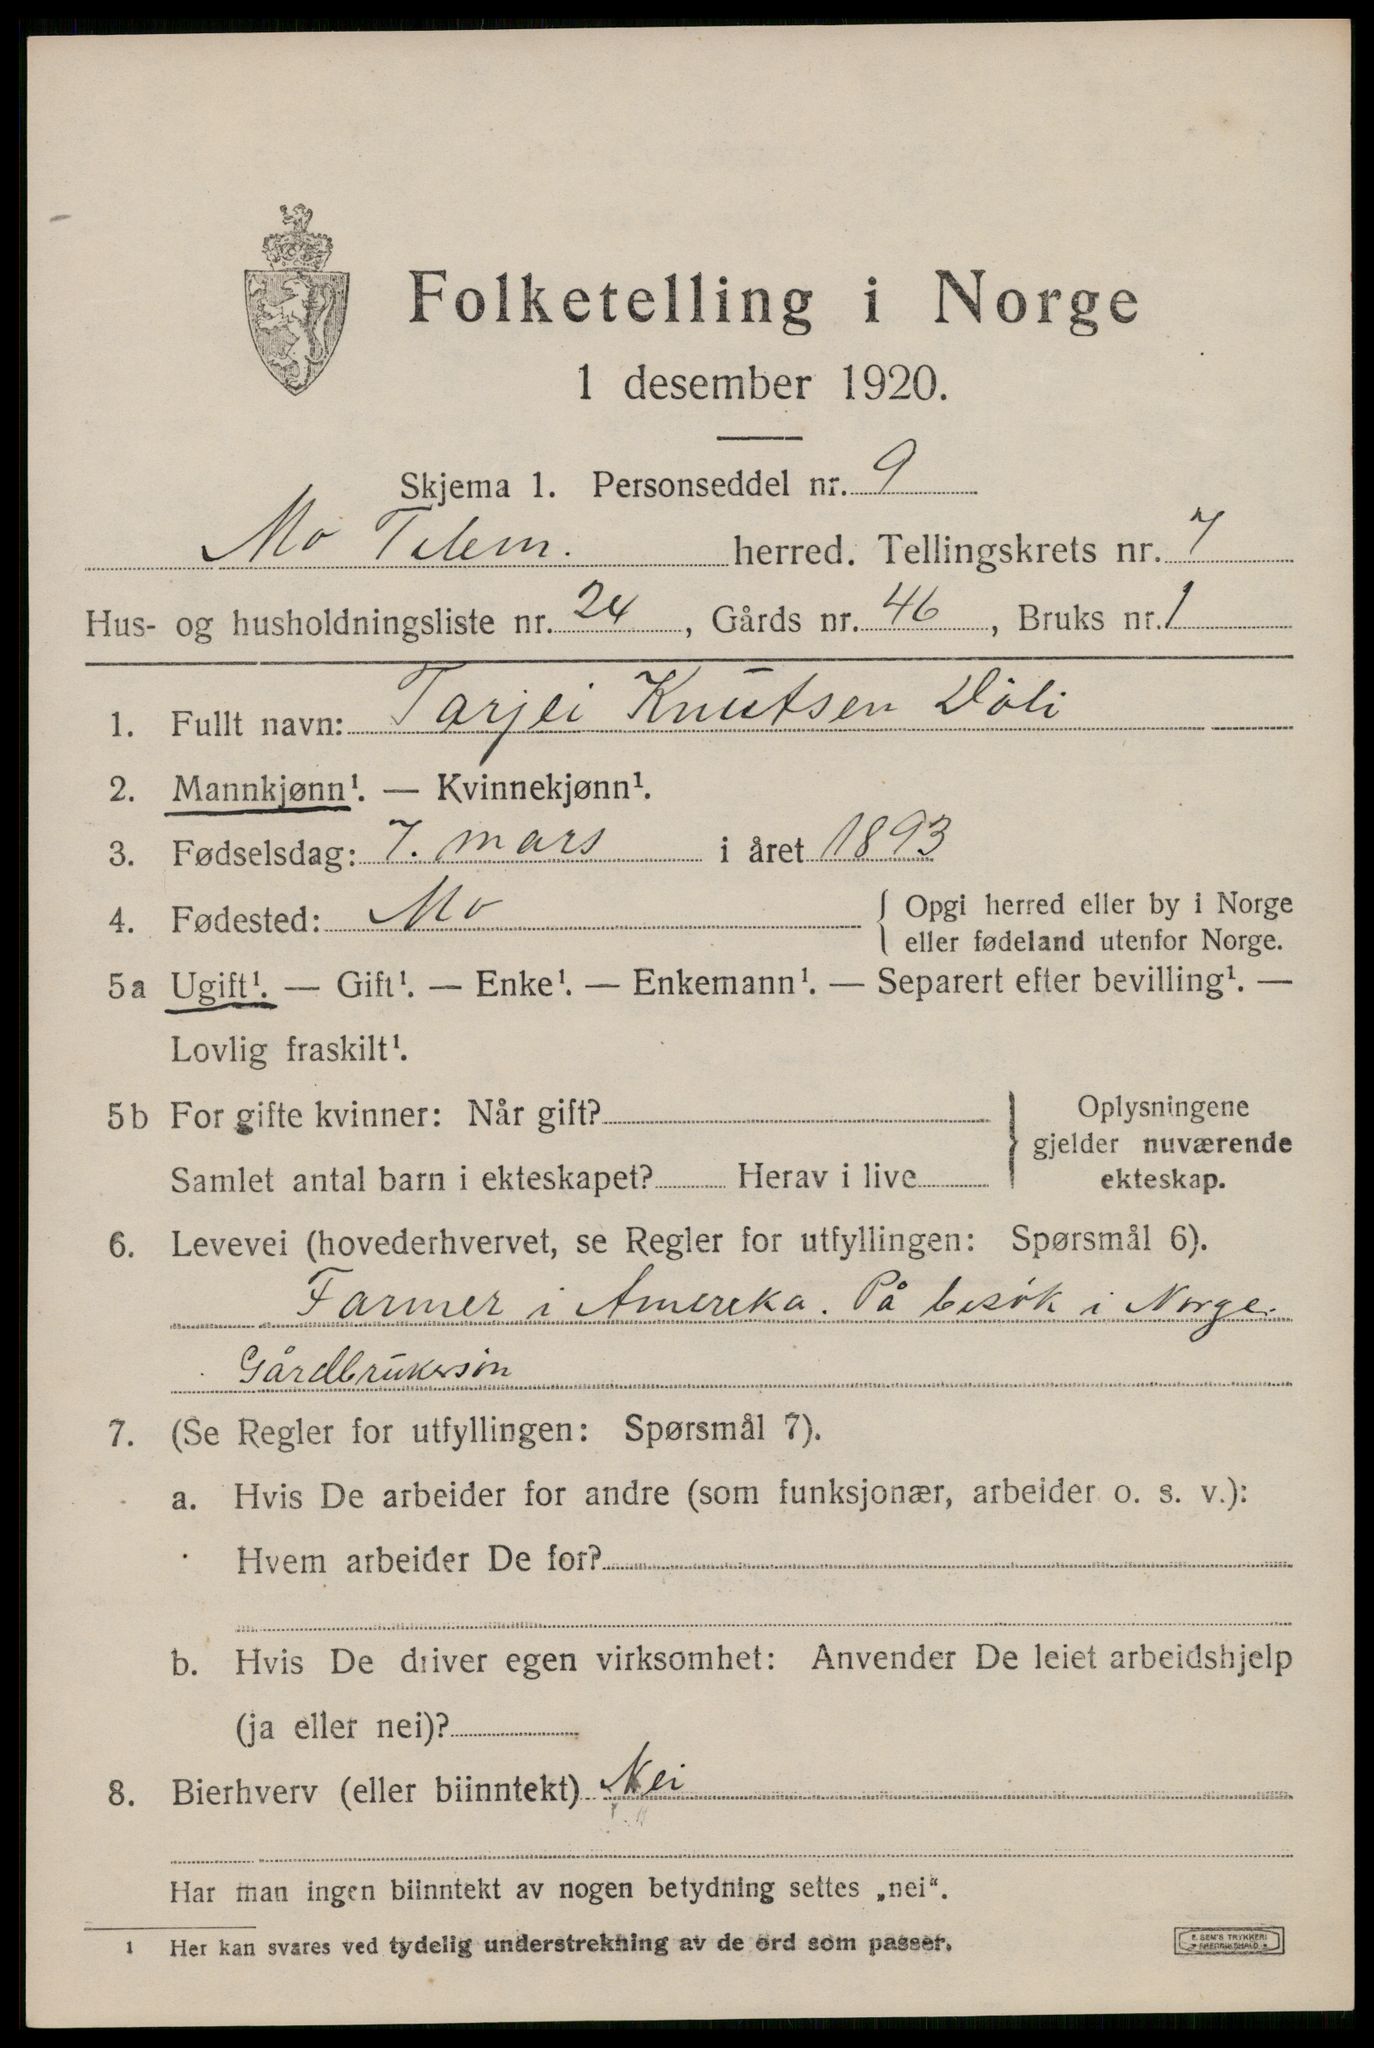 Folketelling i Norge
1 desember 1920.
Skjema 1. Personseddel nr. 9
Mo Telem. herred. Tellingskrets nr. 7
Hus- og husholdningsliste nr. 24, Gårds nr. 46, Bruks nr. 1
1. Fullt navn: Tarjei Knutsen Döli
2. Mannkjønn¹. — Kvinnekjønn¹.
3. Fødselsdag: 7. mars i året 1893
4. Fødested: Mo { Opgi herred eller by i Norge
eller fødeland utenfor Norge.
5a Ugift¹. — Gift¹. — Enke¹. — Enkemann¹. — Separert efter bevilling¹. —
Lovlig fraskilt¹.
5b For gifte kvinner: Når gift? } Oplysningene
gjelder nuværende
Samlet antal barn i ekteskapet? Herav i live ekteskap.
6. Levevei (hovederhvervet, se Regler for utfyllingen: Spørsmål 6).
Farmer i Amereka. På besök i Norge.
Gårdbrukersön
7. (Se Regler for utfyllingen: Spørsmål 7).
a. Hvis De arbeider for andre (som funksjonær, arbeider o. s. v.):
Hvem arbeider De for?
b. Hvis De driver egen virksomhet: Anvender De leiet arbeidshjelp
(ja eller nei)?
8. Bierhverv (eller biinntekt) Nei
Har man ingen biinntekt av nogen betydning settes „nei“.
1 Her kan svares ved tydelig understrekning av de ord som passer.
E. SEM'S TRYKKERI
FREDRIKSHALD